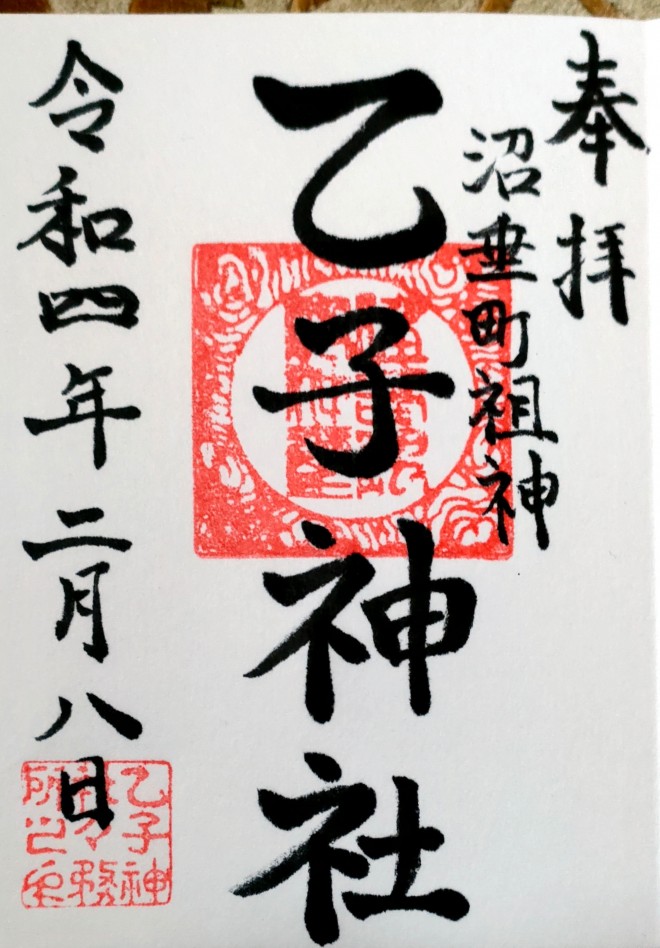 奉拝
沼垂町祖神
乙子神社
令和四年二月八日
乙子神
社々務
所之印